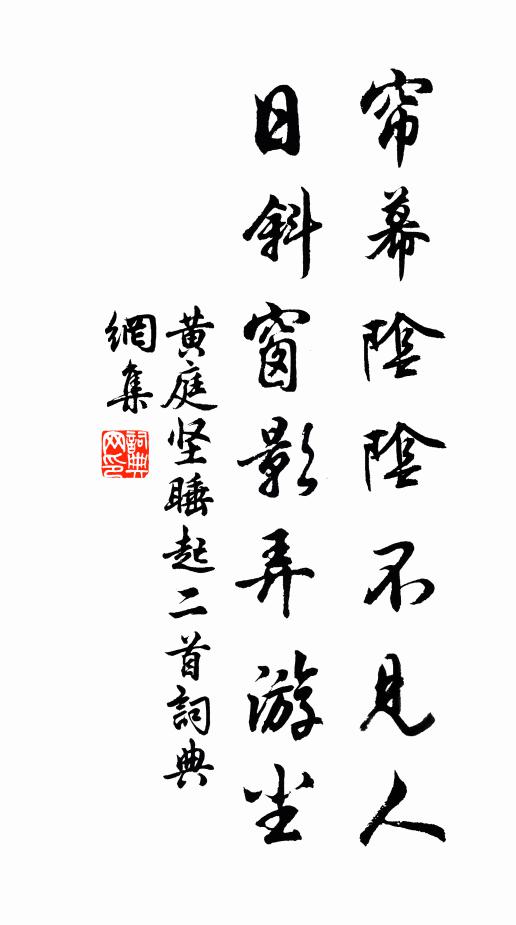 帘幕陰陰不見人
日斜窗影弄游尘
黄庭坚睡起二首詞典
網集
詞典网印